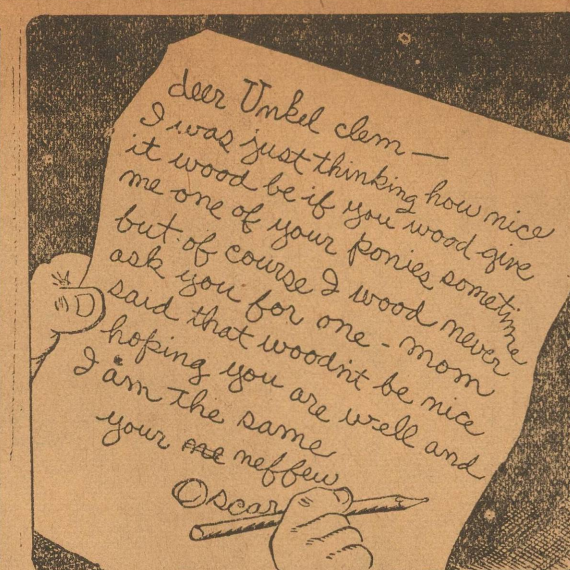 deer Unkel clem —
I was just thinking how nice
it wood be if you wood give
me one of your ponies sometime
but of course I wood never
ask you for one - mom
said that woodn't be nice
hoping you are well and
I am the same
your ne neffew
Oscar